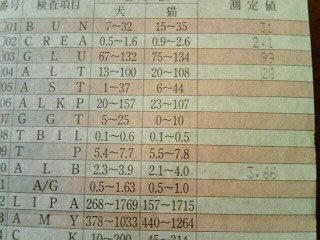 番号 検査項目 犬 猫 測定値
001 BUN 7~32 15~35 31
002 CREA 0.5~1.6 0.9~2.6 2.1
003 GLU 67~132 75~134 99
004 ALT 13~100 20~108 28
005 AST 1~37 6~44
06 ALKP 20~157 23~107
07 GGT 5~25 0~10
08 TBIL 0.1~0.6 0.1~0.5
09 TP 5.4~7.7 5.5~7.8
0 ALB 2.3~3.9 2.1~4.0 3.66
1 A/G 0.5~1.63 0.5~1.0
2 LIPA 268~1769 157~1715
3 AMY 378~1033 440~1264
4 CK 10~200